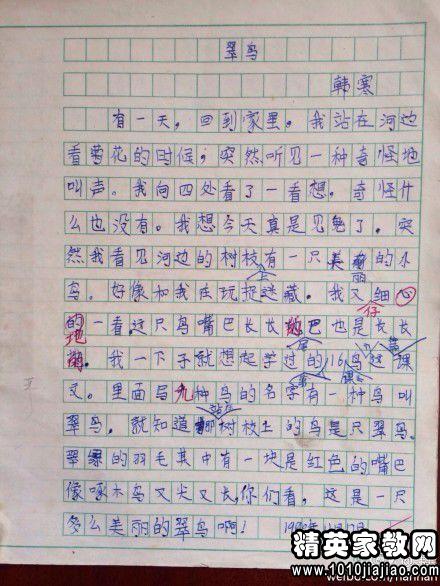 翠鸟
韩寒
有一天，回到家里。我站在河边
看菊花的时候，突然听见一种奇怪地
叫声。我向四处看了一看想。奇怪什
么也没有。我想今天真是见鬼了。突
然我看见河边的树枝有一只美丽的小
上
鸟。好像和我在玩捉迷藏。我又细心
仔
的一看这只鸟嘴巴长长尾巴也是长长
地
的。我一下子就想起学过的《16鸟》这课
第 课
文。里面写九种鸟的名字有一种鸟叫
翠鸟。就知道站在那树枝上的鸟是只翠鸟。
翠绿的羽毛其中有一块是红色的嘴巴
像啄木鸟又尖又长，你们看，这是一只
多么美丽的翠鸟啊！
精英家教网
www.1010jiajiao.com
weibo.com/hanhan